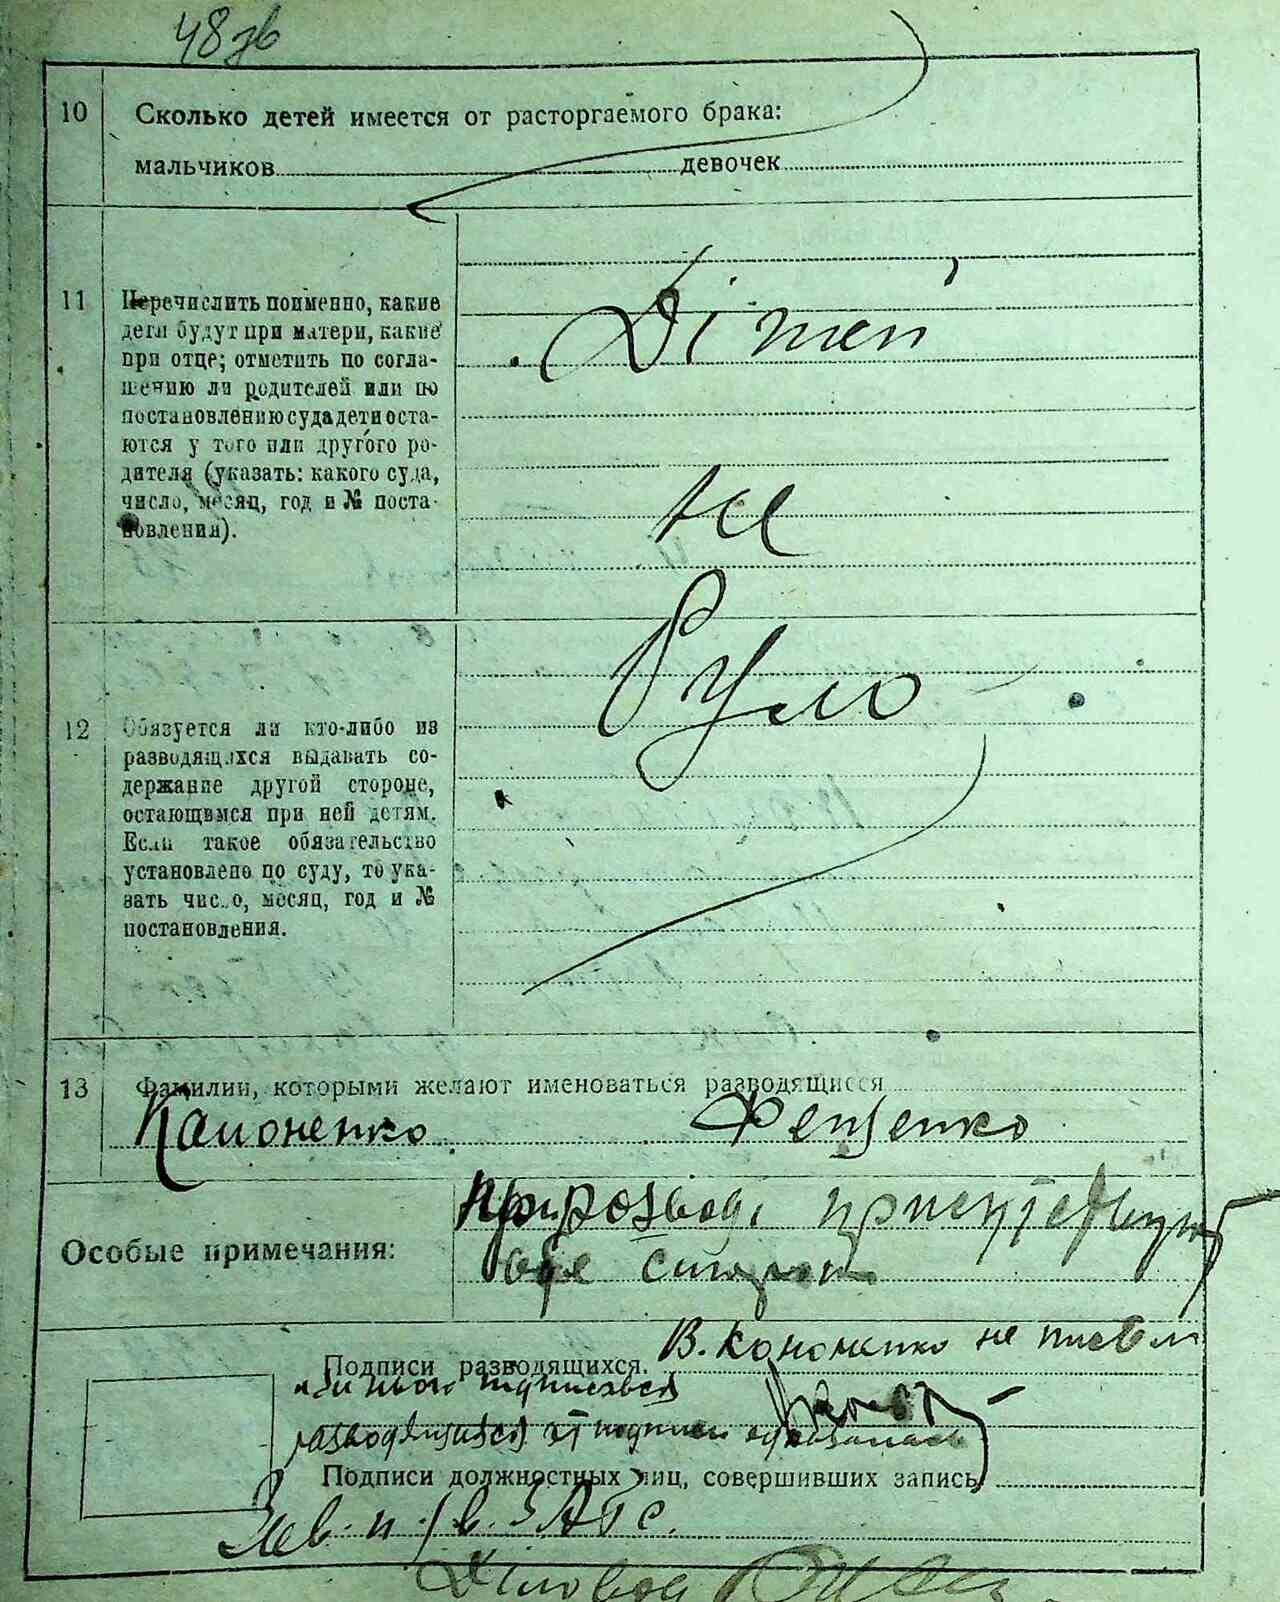 48 зв
10 Сколько детей имеется от расторгаемого брака:
мальчиков девочек
11 Перечислить поименно, какие
дети будут при матери, какие
при отце; отметить по согла-
шению ли родителей или по
постановлению суда дети оста-
ются у того или другого ро-
дителя (указать: какого суда,
число, месяц, год и № поста-
новления).
Дітей
не
було
12 Обязуется ли кто-либо из
разводящихся выдавать со-
держание другой стороне,
остающимся при ней детям.
Если такое обязательство
установлено по суду, то ука-
зать число, месяц, год и №
постановления.
13 Фамилии, которыми желают именоваться разводящиеся
Кононенко Фещенко
Особые примечания:
При розводі
обе
В. Кононенко не
Подписи разводящихся.
Подписи должностных лиц, совершивших запись
Зав. п/в. ЗАГС.
Діловод